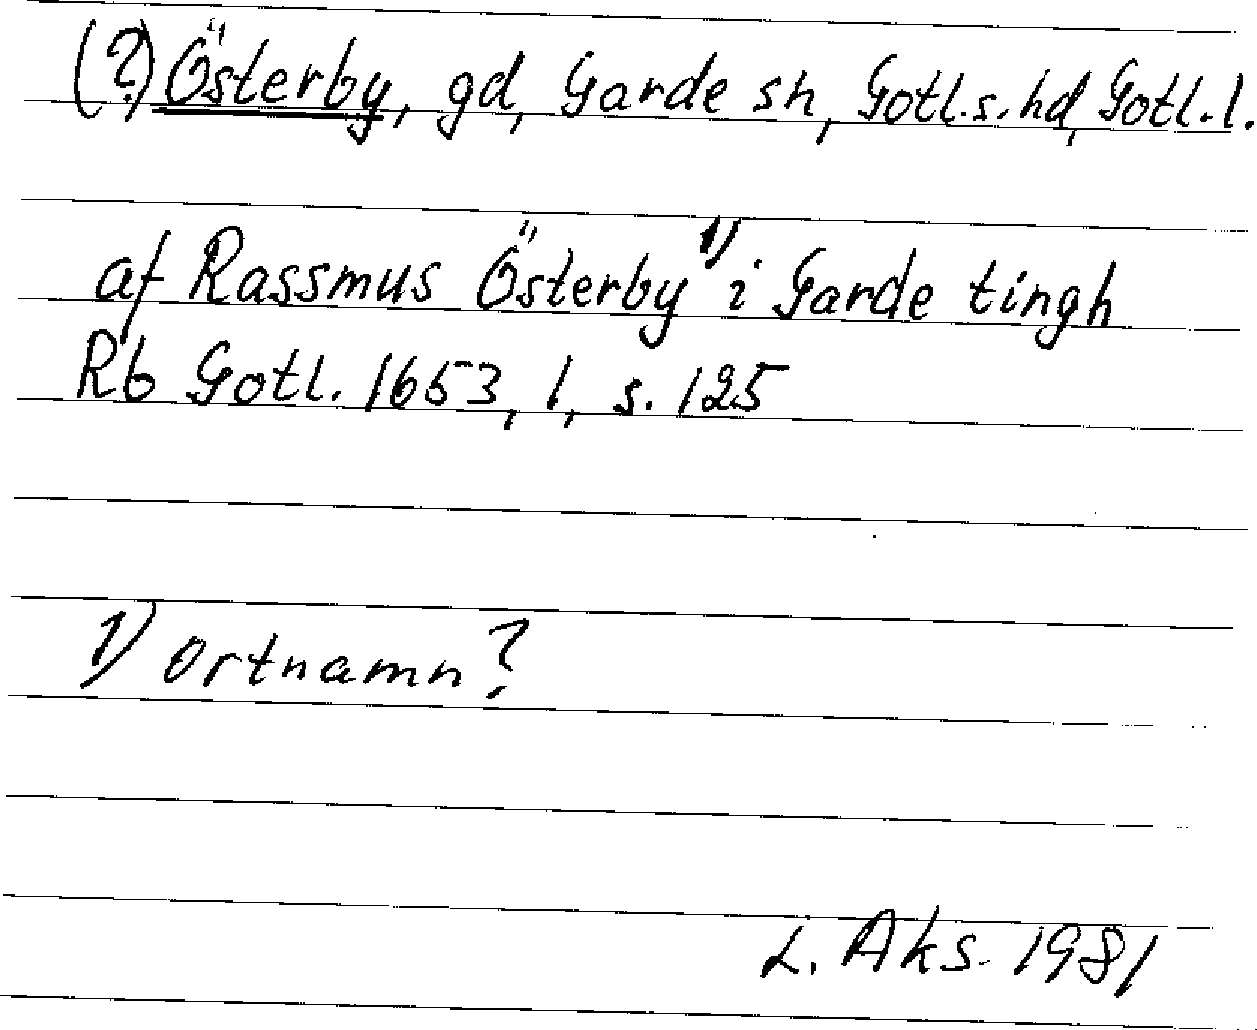 (?) Österby, gd, Garde sn, Gotl.s. hd, Gotl. l.
af Rassmus Österby 1) i Garde tingh
Rb Gotl. 1653, 1, s. 125
1) Ortnamn?
L. Aks. 1981